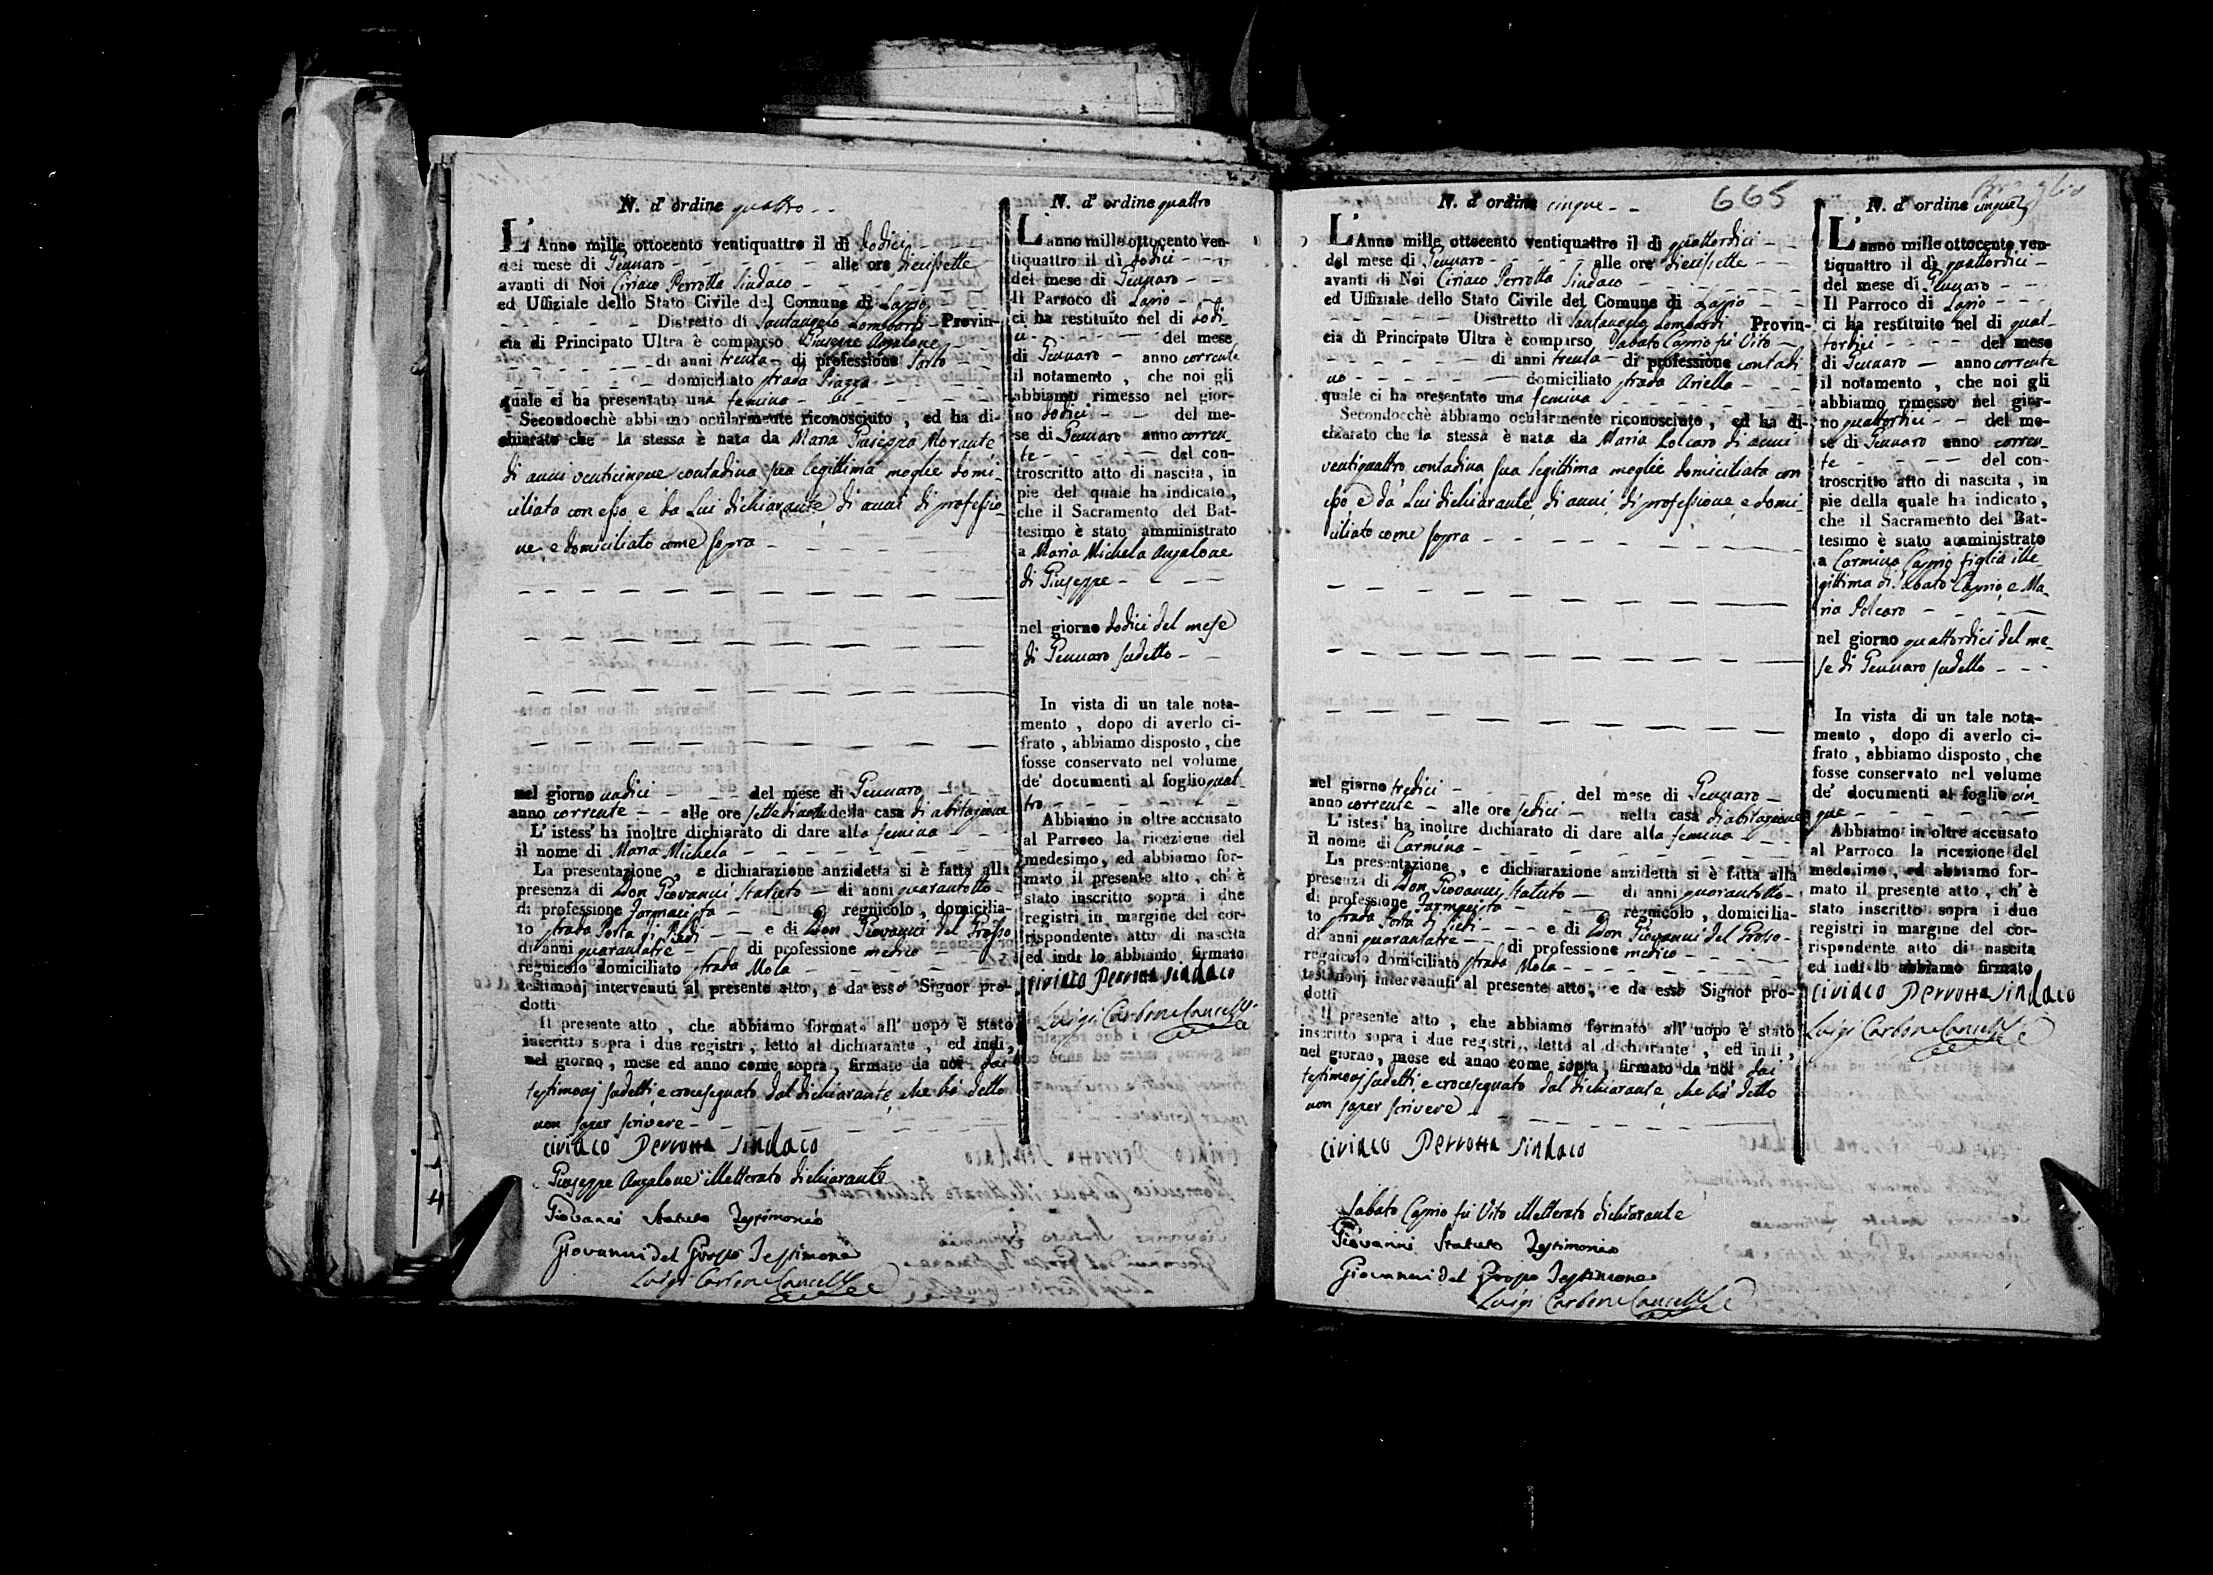 N. d' ordine quattro
L'Anno mille ottocento ventiquattro il dì dodici
del mese di Gennaro alle ore diecisette
avanti di Noi Ciriaco Perrotta Sindaco
ed Uffiziale dello Stato Civile del Comune di Lapio
Distretto di Santangelo Lombardi Provin-
cia di Principato Ultra è comparso Giuseppe Anzalone
di anni trenta di professione Sarto
domiciliato strada Piazza
quale ci ha presentato una femina
Secondocchè abbiamo ocularmente riconosciuto, ed ha di-
chiarato che la stessa è nata da Maria Giuseppa Morante
di anni venticinque contadina sua legittima moglie domi-
ciliata con esso, e da Lui dichiarante, di anni di professio-
ne, e domiciliato come sopra
nel giorno undici del mese di Gennaro
anno corrente alle ore sette di notte della casa di abitazione
L'istess' ha inoltre dichiarato di dare alla femina
il nome di Maria Michela
La presentazione, e dichiarazione anzidetta si è fatta alla
presenza di Don Giovanni Statuto di anni quarantotto
di professione Farmacista regnicolo, domicilia-
to strada Porta di Piedi e di Don Giovanni del Grosso
di anni quarantatre di professione medico
regnicolo domiciliato strada Mola
testimonj intervenuti al presente atto, e da esso Signor pro-
dotti
Il presente atto, che abbiamo formato all' uopo è stato
inscritto sopra i due registri, letto al dichiarante, ed indi,
nel giorno, mese ed anno come sopra, firmato da noi dai
testimonj sudetti, e crocesegnato dal dichiarante, che há detto
non saper scrivere
Ciriaco Perrotta Sindaco
Giuseppe Anzalone illetterato dichiarante
Giovanni Statuto Testimonio
Giovanni del Grosso Testimone
Luigi Carbone Cancelle
N. d' ordine quattro
L'anno mille ottocento ven-
tiquattro il dì dodici
del mese di Gennaro
Il Parroco di Lapio
ci ha restituito nel di dodi-
ci del mese
di Gennaro anno corrente
il notamento, che noi gli
abbiamo rimesso nel gior-
no dodici del me-
se di Gennaro anno corren-
te del con-
troscritto atto di nascita, in
pie del quale ha indicato,
che il Sacramento del Bat-
tesimo è stato amministrato
a Maria Michela Anzalone
di Giuseppe
nel giorno dodici del mese
di Gennaro sudetto
In vista di un tale nota-
mento, dopo di averlo ci-
frato, abbiamo disposto, che
fosse conservato nel volume
de' documenti al foglio quat-
tro
Abbiamo in oltre accusato
al Parroco la ricezione del
medesimo, ed abbiamo for-
mato il presente atto, ch' è
stato inscritto sopra i due
registri in margine del cor-
rispondente atto di nascita
ed indi lo abbiamo firmato
Ciriaco Perrotta Sindaco
Luigi Carbone Cancelle
N. d' ordine cinque
665
L'Anno mille ottocento ventiquattro il dì quattordici
del mese di Gennaro alle ore diecisette
avanti di Noi Ciriaco Perrotta Sindaco
ed Uffiziale dello Stato Civile del Comune di Lapio
Distretto di Santangelo Lombardi Provin-
cia di Principato Ultra è comparso Sabato Caprio fù Vito
di anni trenta di professione contadi
no domiciliato strada Ariella
quale ci ha presentato una femina
Secondocchè abbiamo ocularmente riconosciuto, ed ha di-
chiarato che la stessa è nata da Maria Polcaro di anni
ventiquattro contadina sua legittima moglie domiciliata con
esso, e da Lui dichiarante, di anni, di professione, e domi-
ciliato come sopra
nel giorno tredici del mese di Gennaro
anno corrente alle ore sedici nella casa di abitazione
L'istess' ha inoltre dichiarato di dare alla femina
il nome di Carmina
La presentazione, e dichiarazione anzidetta si è fatta alla
presenza di Don Giovanni Statuto di anni quarantotto
di professione Farmacista regnicolo, domicilia-
to strada Porta di Piedi e di Don Giovanni del Grosso
di anni quarantatre di professione medico
regnicolo domiciliato strada Mola
testimonj intervenuti al presente atto, e da esso Signor pro-
dotti
Il presente atto, che abbiamo formato all' uopo è stato
inscritto sopra i due registri, letto al dichiarante, ed indi,
nel giorno, mese ed anno come sopra, firmato da noi dai
testimonj sudetti, e crocesegnato dal dichiarante, che há detto
non saper scrivere
Ciriaco Perrotta Sindaco
Sabato Caprio fù Vito illetterato dichiarante
Giovanni Statuto Testimonio
Giovanni del Grosso Testimone
Luigi Carbone Cancelle
N. d' ordine cinque
L'anno mille ottocento ven-
tiquattro il dì quattordici
del mese di Gennaro
Il Parroco di Lapio
ci ha restituito nel di quat-
tordici del mese
di Gennaro anno corrente
il notamento, che noi gli
abbiamo rimesso nel gior-
no quattordici del me-
se di Gennaro anno corren-
te del con-
troscritto atto di nascita, in
pie della quale ha indicato,
che il Sacramento del Bat-
tesimo è stato amministrato
a Carmina Caprio figlia ille
gittima di Sabato Caprio, e Ma-
ria Polcaro
nel giorno quattordici del me-
se di Gennaro sudetto
In vista di un tale nota-
mento, dopo di averlo ci-
frato, abbiamo disposto, che
fosse conservato nel volume
de' documenti al foglio cin-
que
Abbiamo in oltre accusato
al Parroco la ricezione del
medesimo, ed abbiamo for-
mato il presente atto, ch' è
stato inscritto sopra i due
registri in margine del cor-
rispondente atto di nascita
ed indi lo abbiamo firmato
Ciriaco Perrotta Sindaco
Luigi Carbone Cancelle